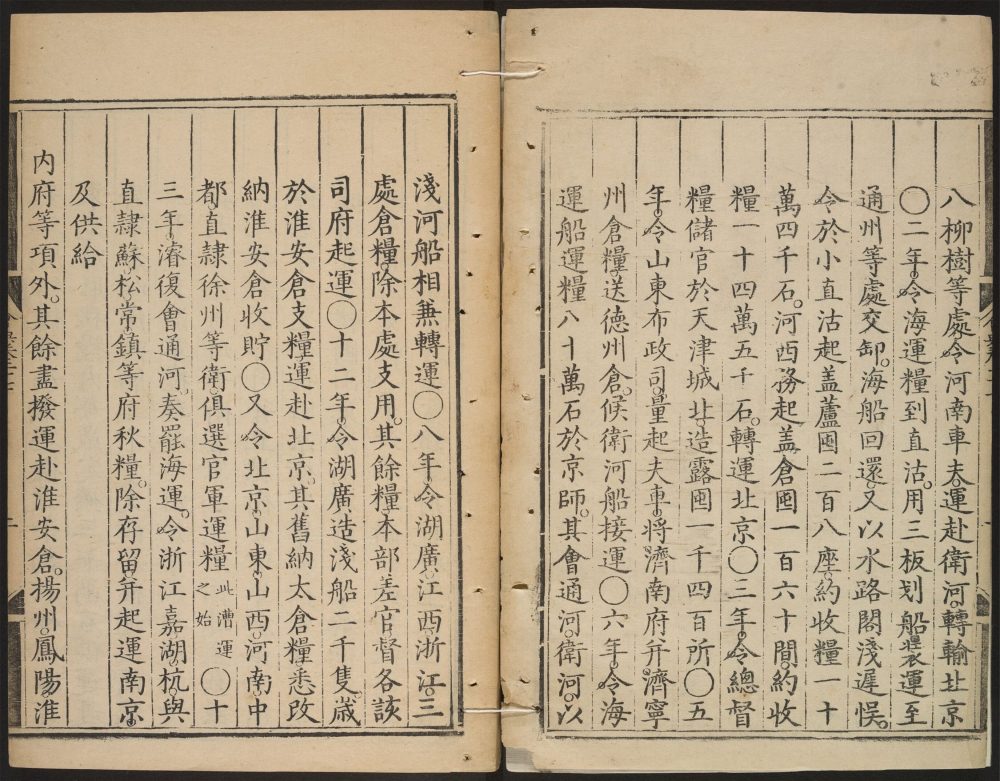 八柳樹等處令河南車夫運赴衛河轉輸北京
〇二年令海運糧到直沽用三板划船裝運至
通州等處交卸海船回還又以水路閣淺遲悞
令於小直沽起盖蘆囤二百八座約收糧一十
萬四千石河西務起盖倉囤一百六十間約收
糧一十四萬五千石轉運北京〇三年令總督
糧儲官於天津城北造露囤一千四百所〇五
年令山東布政司量起夫車將濟南府幷濟寧
州倉糧送德州倉候衛河船接運〇六年令海
運船運糧八十萬石於京師其會通河衛河以
淺河船相兼轉運〇八年令湖廣江西浙江三
處倉糧除本處支用其餘糧本部差官督各該
司府起運〇十二年令湖廣造淺船二千隻歲
於淮安倉支糧運赴北京其舊納太倉糧悉改
納淮安倉收貯〇又令北京山東山西河南中
都直隷徐州等衛俱選官軍運糧此漕運之始〇十
三年濬復會通河奏罷海運令浙江嘉湖杭與
直隷蘇松常鎮等府秋糧除存留幷起運南京
及供給
内府等項外其餘盡撥運赴淮安倉揚州鳳陽淮